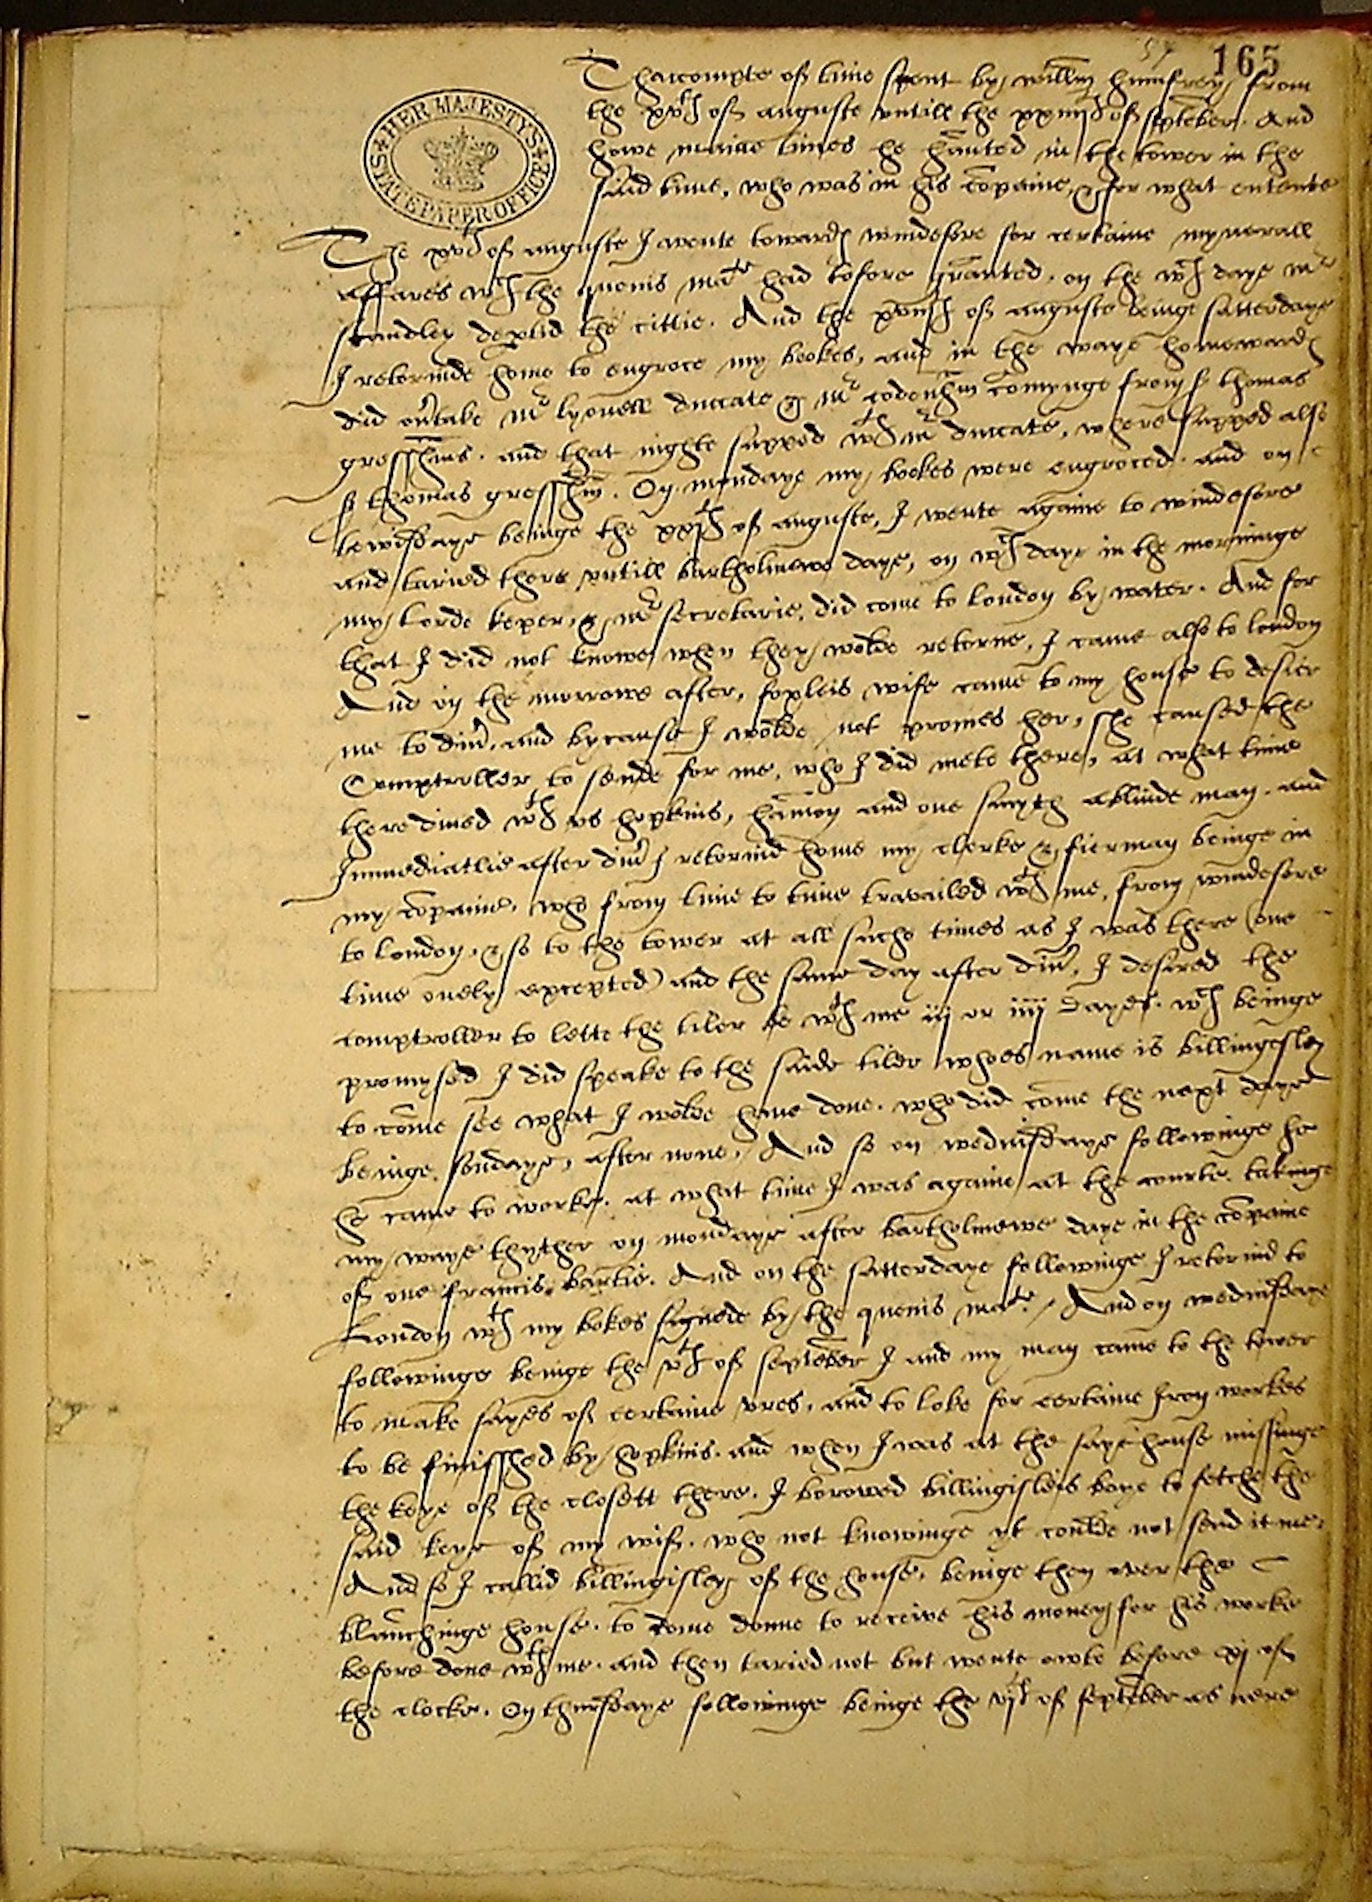 57 165
HER MAJESTY'S STATE PAPER OFFICE
Thaccompte of time spent by willm humfrey from
the xvth of auguste untill the of september. And
howe manie times he haunted in the tower in the
said time, who was in his copaine, & for what entente
The of auguste I wente towards windesore for certaine mynerall
affares wch the quenis matie had tofore graunted. on the wch daye mr
standley the cittie. And the xviijth of auguste beinge satterdaye
I retornide home to engroce my bookes, and in the waye homewards
did ov'take mr lyonell duccate & mr comynge from sr thomas
gresshms. and that nighte supped wth mr duccate, where supped also
sr thomas gresshm. On mondaye my bookes were engroced. and on
tewisdaye beinge the xxjth of auguste, I wente againe to windesore
and taried there untill bartholmewe daye, on wch daye in the morninge
my Lorde keper, & mr secretarie, did come to london by water. And for
that I did not knowe when they wolde retorne, I came also to london
And on the morrowe after, foxleis wife came to my house to desier
me to dinr, and bycause I wolde not promes her, she caused the
Comptroller to sende for me, who I did mete there, at what time
there dined wth us hopkins, and one smyth a blinde man. and
Immediatlie after dinr I retornid home my clerke & fierman beinge in
my copaine, who from time to time travailed wth me, from windesore
to london, & so to the tower at all suche times as I was there (one
time onely excepted) and the same day after dinr, I desired the
comptroller to lette the tiler be wth me iij or iiij dayes. wch beinge
promysed I did speake to the saide tiler whoes name is billingesley
to come see what I wolde have done. who did come the next daye
beinge sondaye, after none. And so on wednisdaye followinge he
came to worke. at what time I was againe at the courte. takinge
my waye thyther on mondaye after bartholmewe daye in the copaine
of one francis bartie. And on the satterdaye followinge I retornid to
London wth my bokes signede by the quenis matie. And on wednisdaye
followinge beinge the vth of september I and my man came to the tower
to make sayes of certaine ures, and to loke for certaine Iron workes
to be finisshed by hopkins. and when I was at the saye house missinge
the keye of the closett there. I borowed billingisleis boye to fetche the
said keye of my wife. who not knowinge yt coulde not send it me.
And so I callid billingisley of the house, beinge then over the
blanchinge house. to come doune to receive his money for his worke
before done wth me. and then taried not but wente owte before xj of
the clocke. On thursdaye followinge beinge the vjth of september as nere